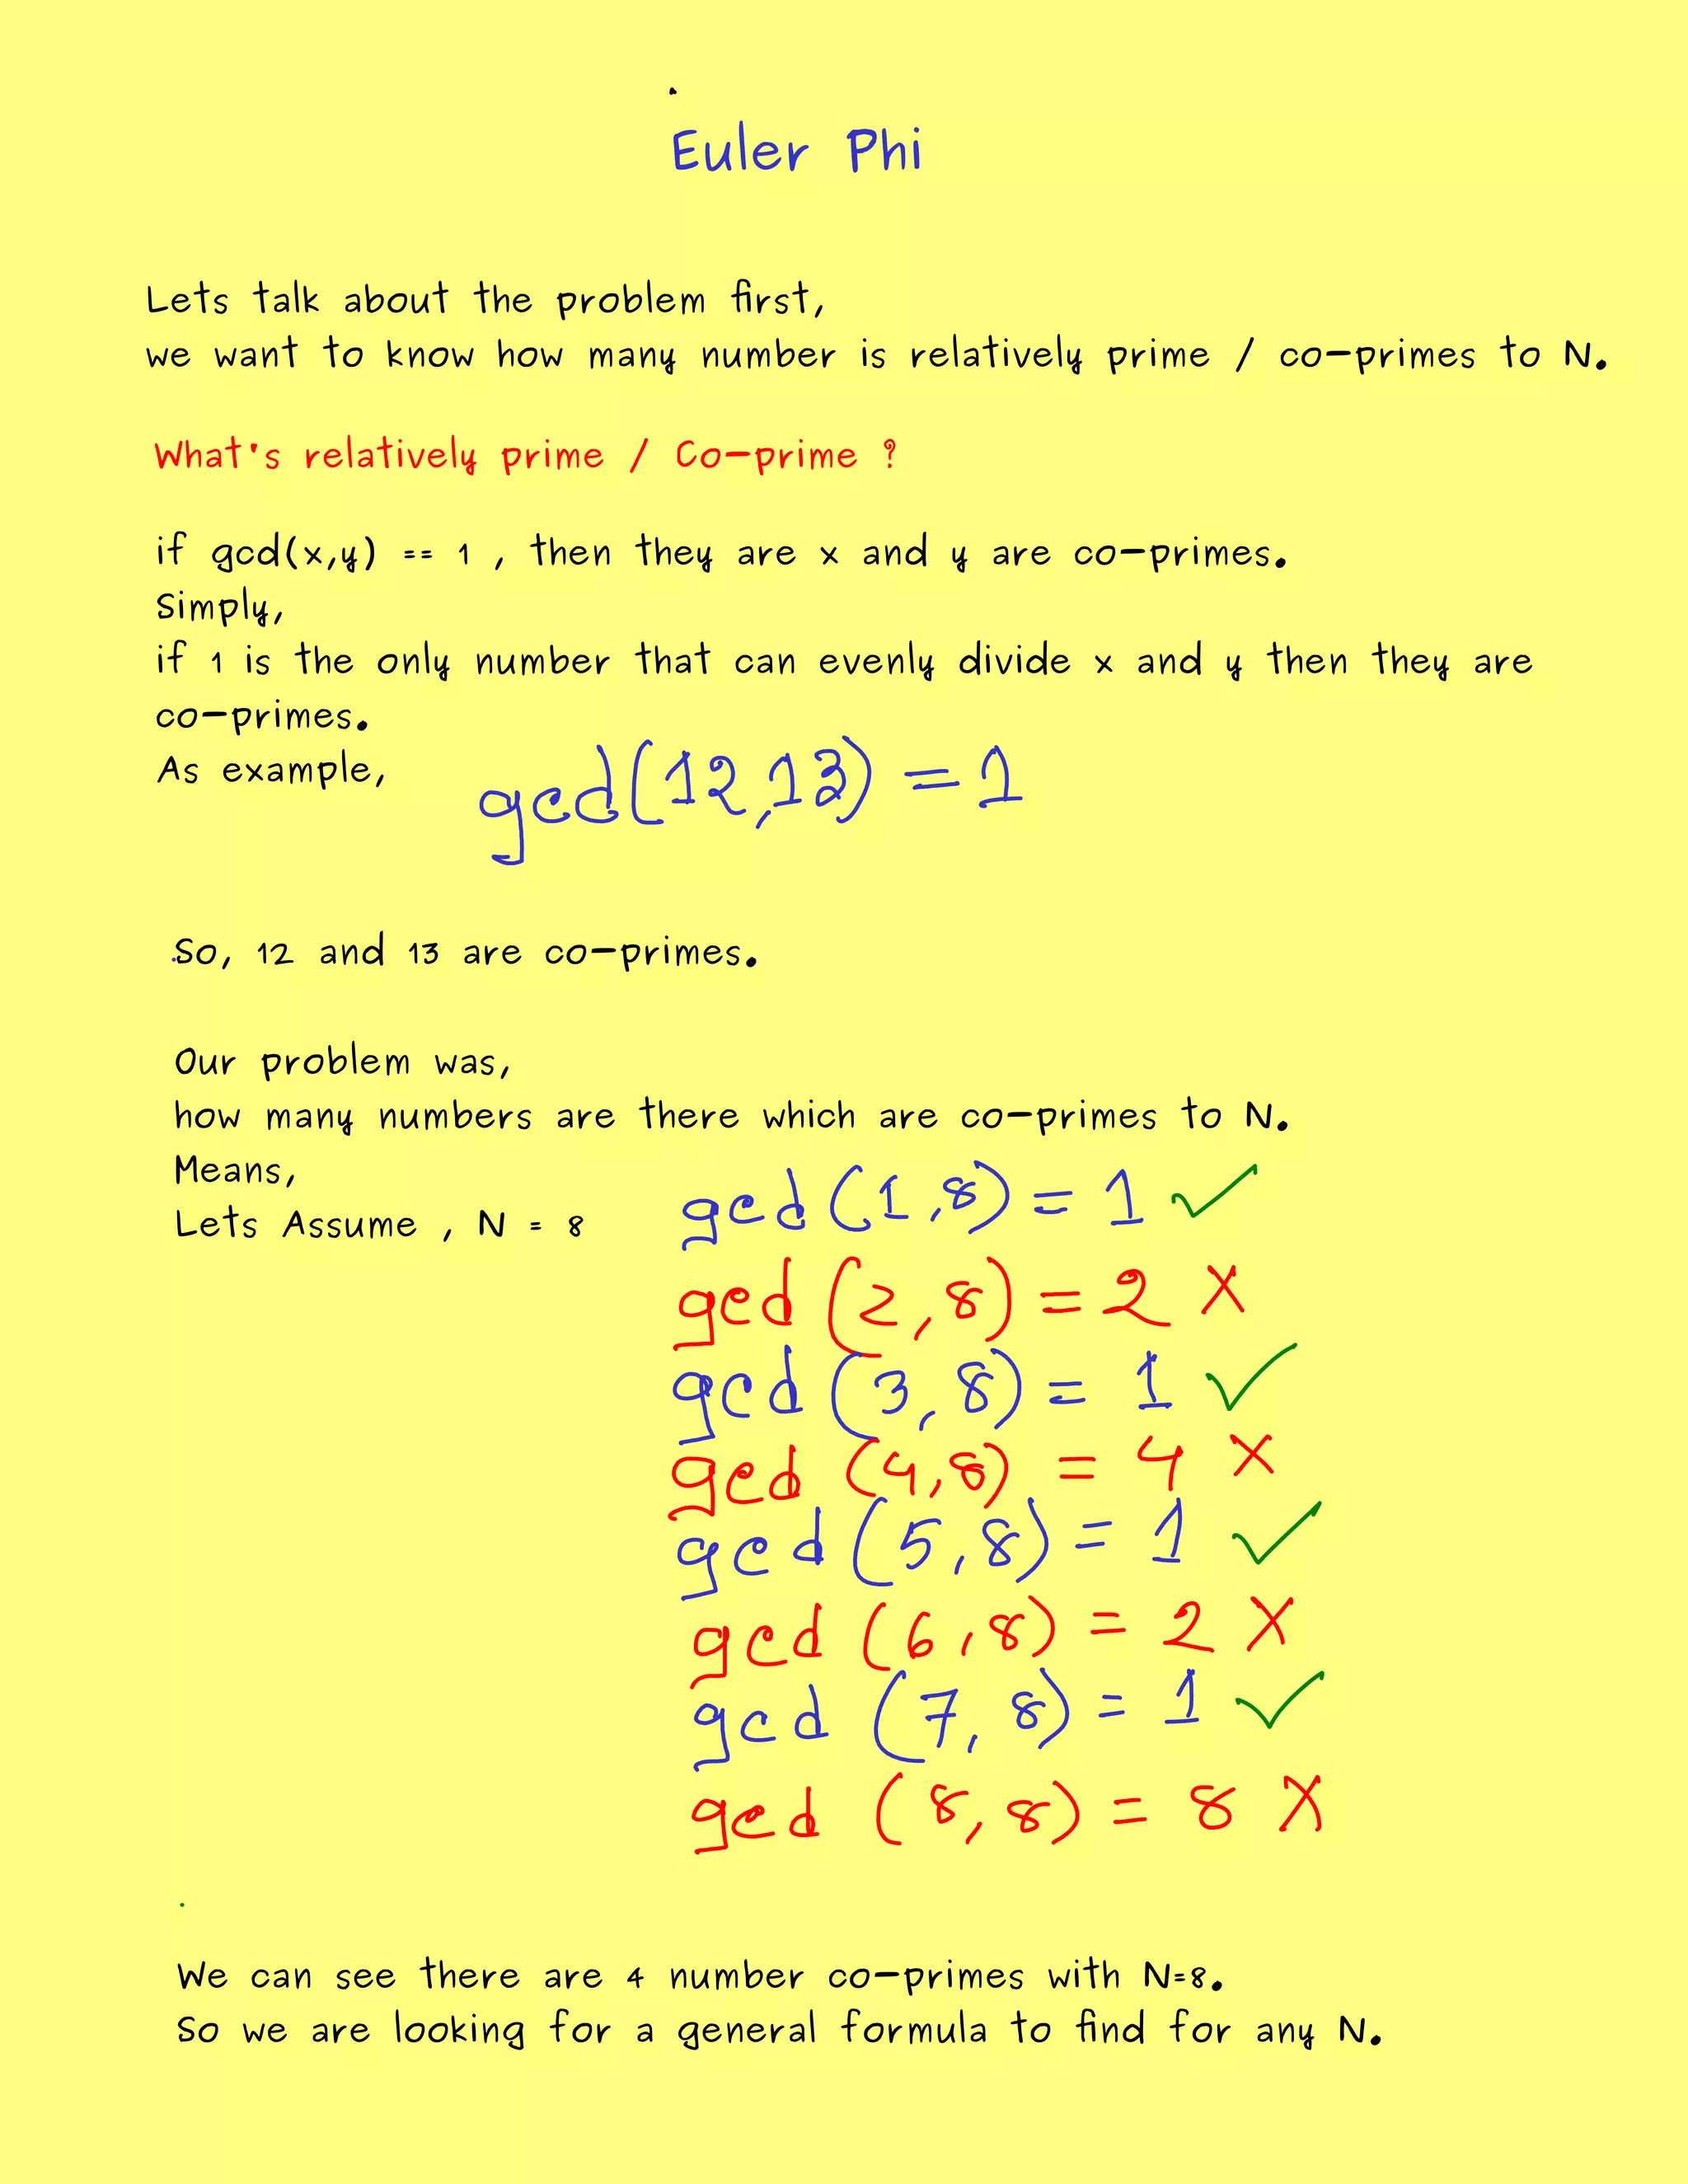 Euler Phi
Lets talk about the problem first,
we want to know how many number is relatively prime / co-primes to N.
What's relatively prime / Co-prime ?
if gcd(x,y) == 1 , then they are x and y are co-primes.
Simply,
if 1 is the only number that can evenly divide x and y then they are
co-primes.
As example, gcd(12,13) = 1
So, 12 and 13 are co-primes.
Our problem was,
how many numbers are there which are co-primes to N.
Means,
Lets Assume , N = 8
gcd (1,8) = 1 ✓
gcd (2,8) = 2 X
gcd (3,8) = 1 ✓
gcd (4,8) = 4 X
gcd (5,8) = 1 ✓
gcd (6,8) = 2 X
gcd (7,8) = 1 ✓
gcd (8,8) = 8 X
We can see there are 4 number co-primes with N=8.
So we are looking for a general formula to find for any N.